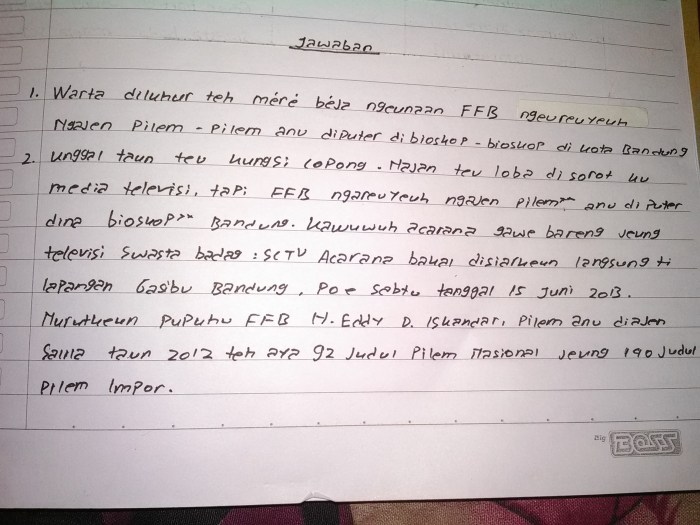 Jawaban
1. Warta diluhur teh méré béja ngeunaan FFB ngeureuyeuh
Ngajen Pilem - Pilem anu diputer dibioskop - bioskop di kota Bandung
2. Unggal taun teu kungsi copong. Najan teu loba di sorot ku
media televisi, tapi FFB ngareuyeuh ngajen pilem²² anu di puter
dina bioskop²² Bandung. Kawuwuh acarana gawe bareng jeung
televisi Swasta badag : SCTV Acarana bakal disiarkeun langsung ti
lapangan Gasibu Bandung, Poe Sabtu tanggal 15 Juni 2013.
Nurutkeun Pupuhu FFB H. Eddy D. Iskandar, Pilem anu diajen
Salila taun 2012 teh aya 92 Judul Pilem Nasional jeung 190 Judul
Pilem Impor.
Big BOSS